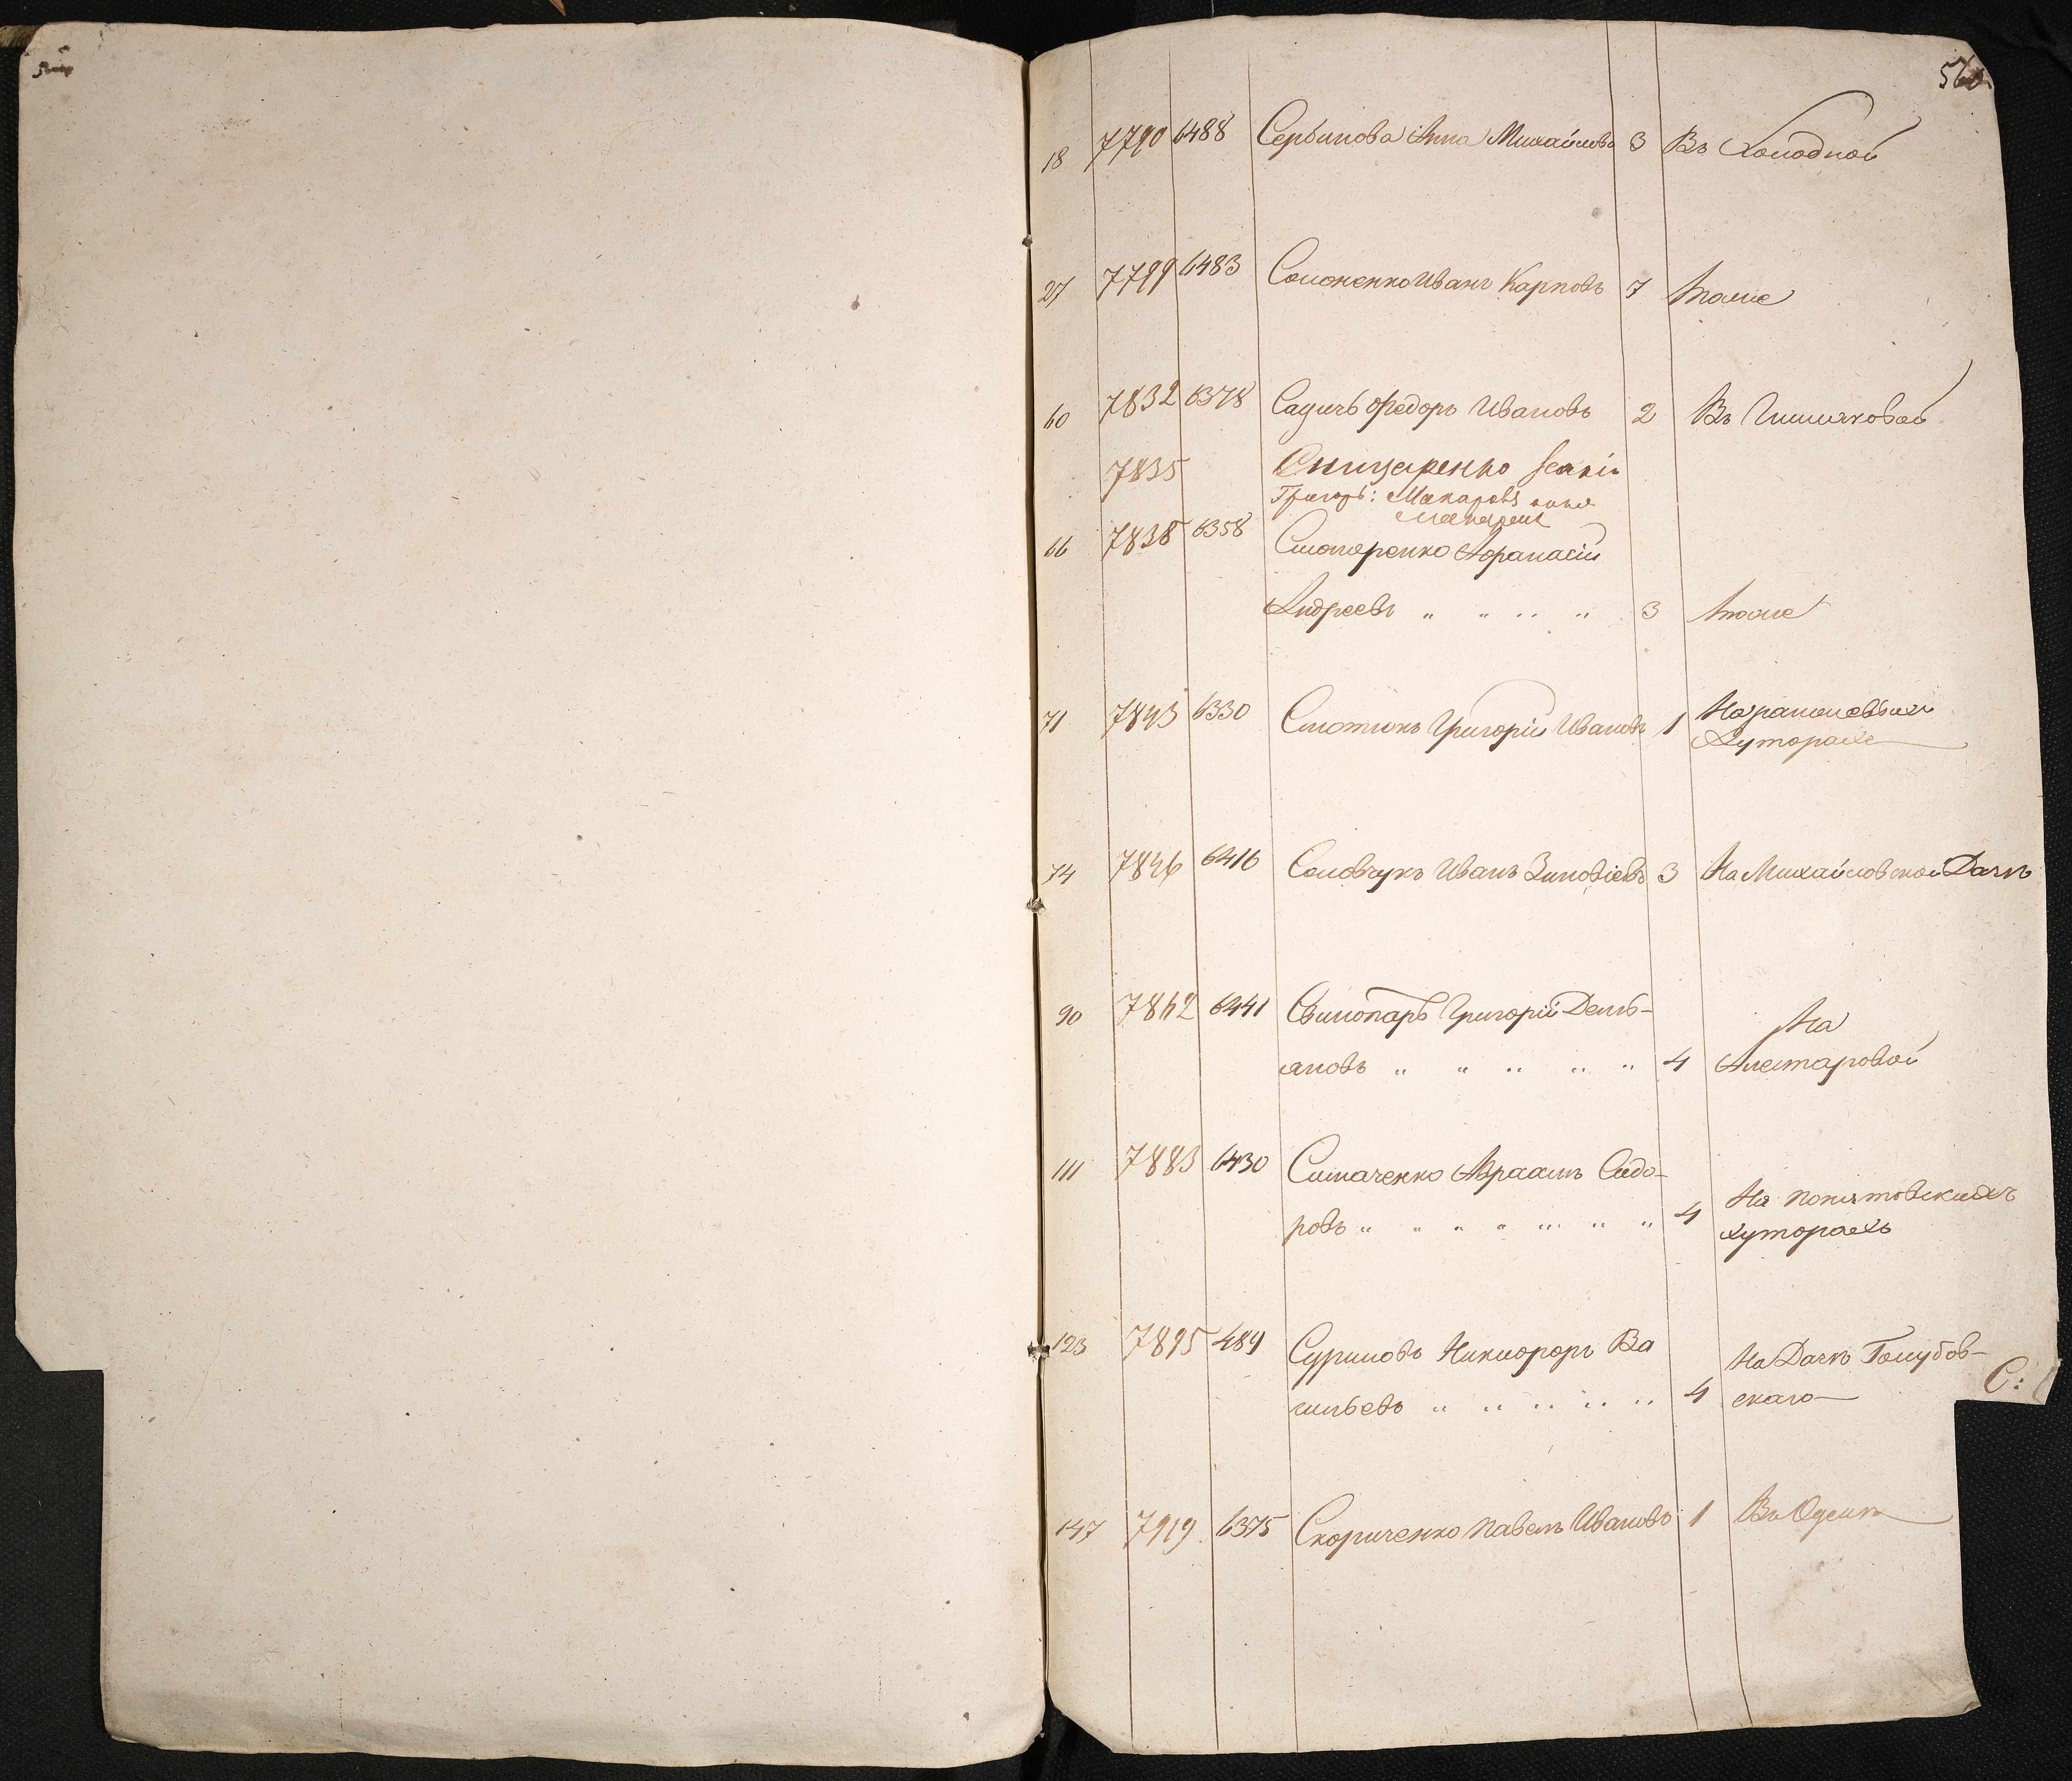 560
18 7790 6488 Сербинова Анна Михайлова 3 Въ Холодной
27 7799 6483 Соложенко Иванъ Карповъ 7 Тоже
60 7832 6378 Садичъ Федоръ Ивановъ 2 Въ
7835 Снизаренко
Григор: Макаровъ
66 7838 6358 Столяренко Афанасій
Андреевъ " " " " 3 Тоже
71 7843 6330 Григорій Ивановъ 1
Хуторахъ
74 7846 6416 Соловчукъ Иванъ Зиновіевъ 3 На Михайловской Дачѣ
90 7862 6441 Свинопаръ Григорій Демь-
На
яновъ " " " " " 4
111 7883 6430 Симаченко Авраамъ Сидо-
На понятовскихъ
ровъ " " " " " " " 4 хуторахъ
123 7895 489 Суриловъ Никифоръ Ва
На Дачѣ Голубов-
сильевъ " " " " " 4 скаго
С:
147 7919 6375 Скориченко Павелъ Ивановъ 1 Въ